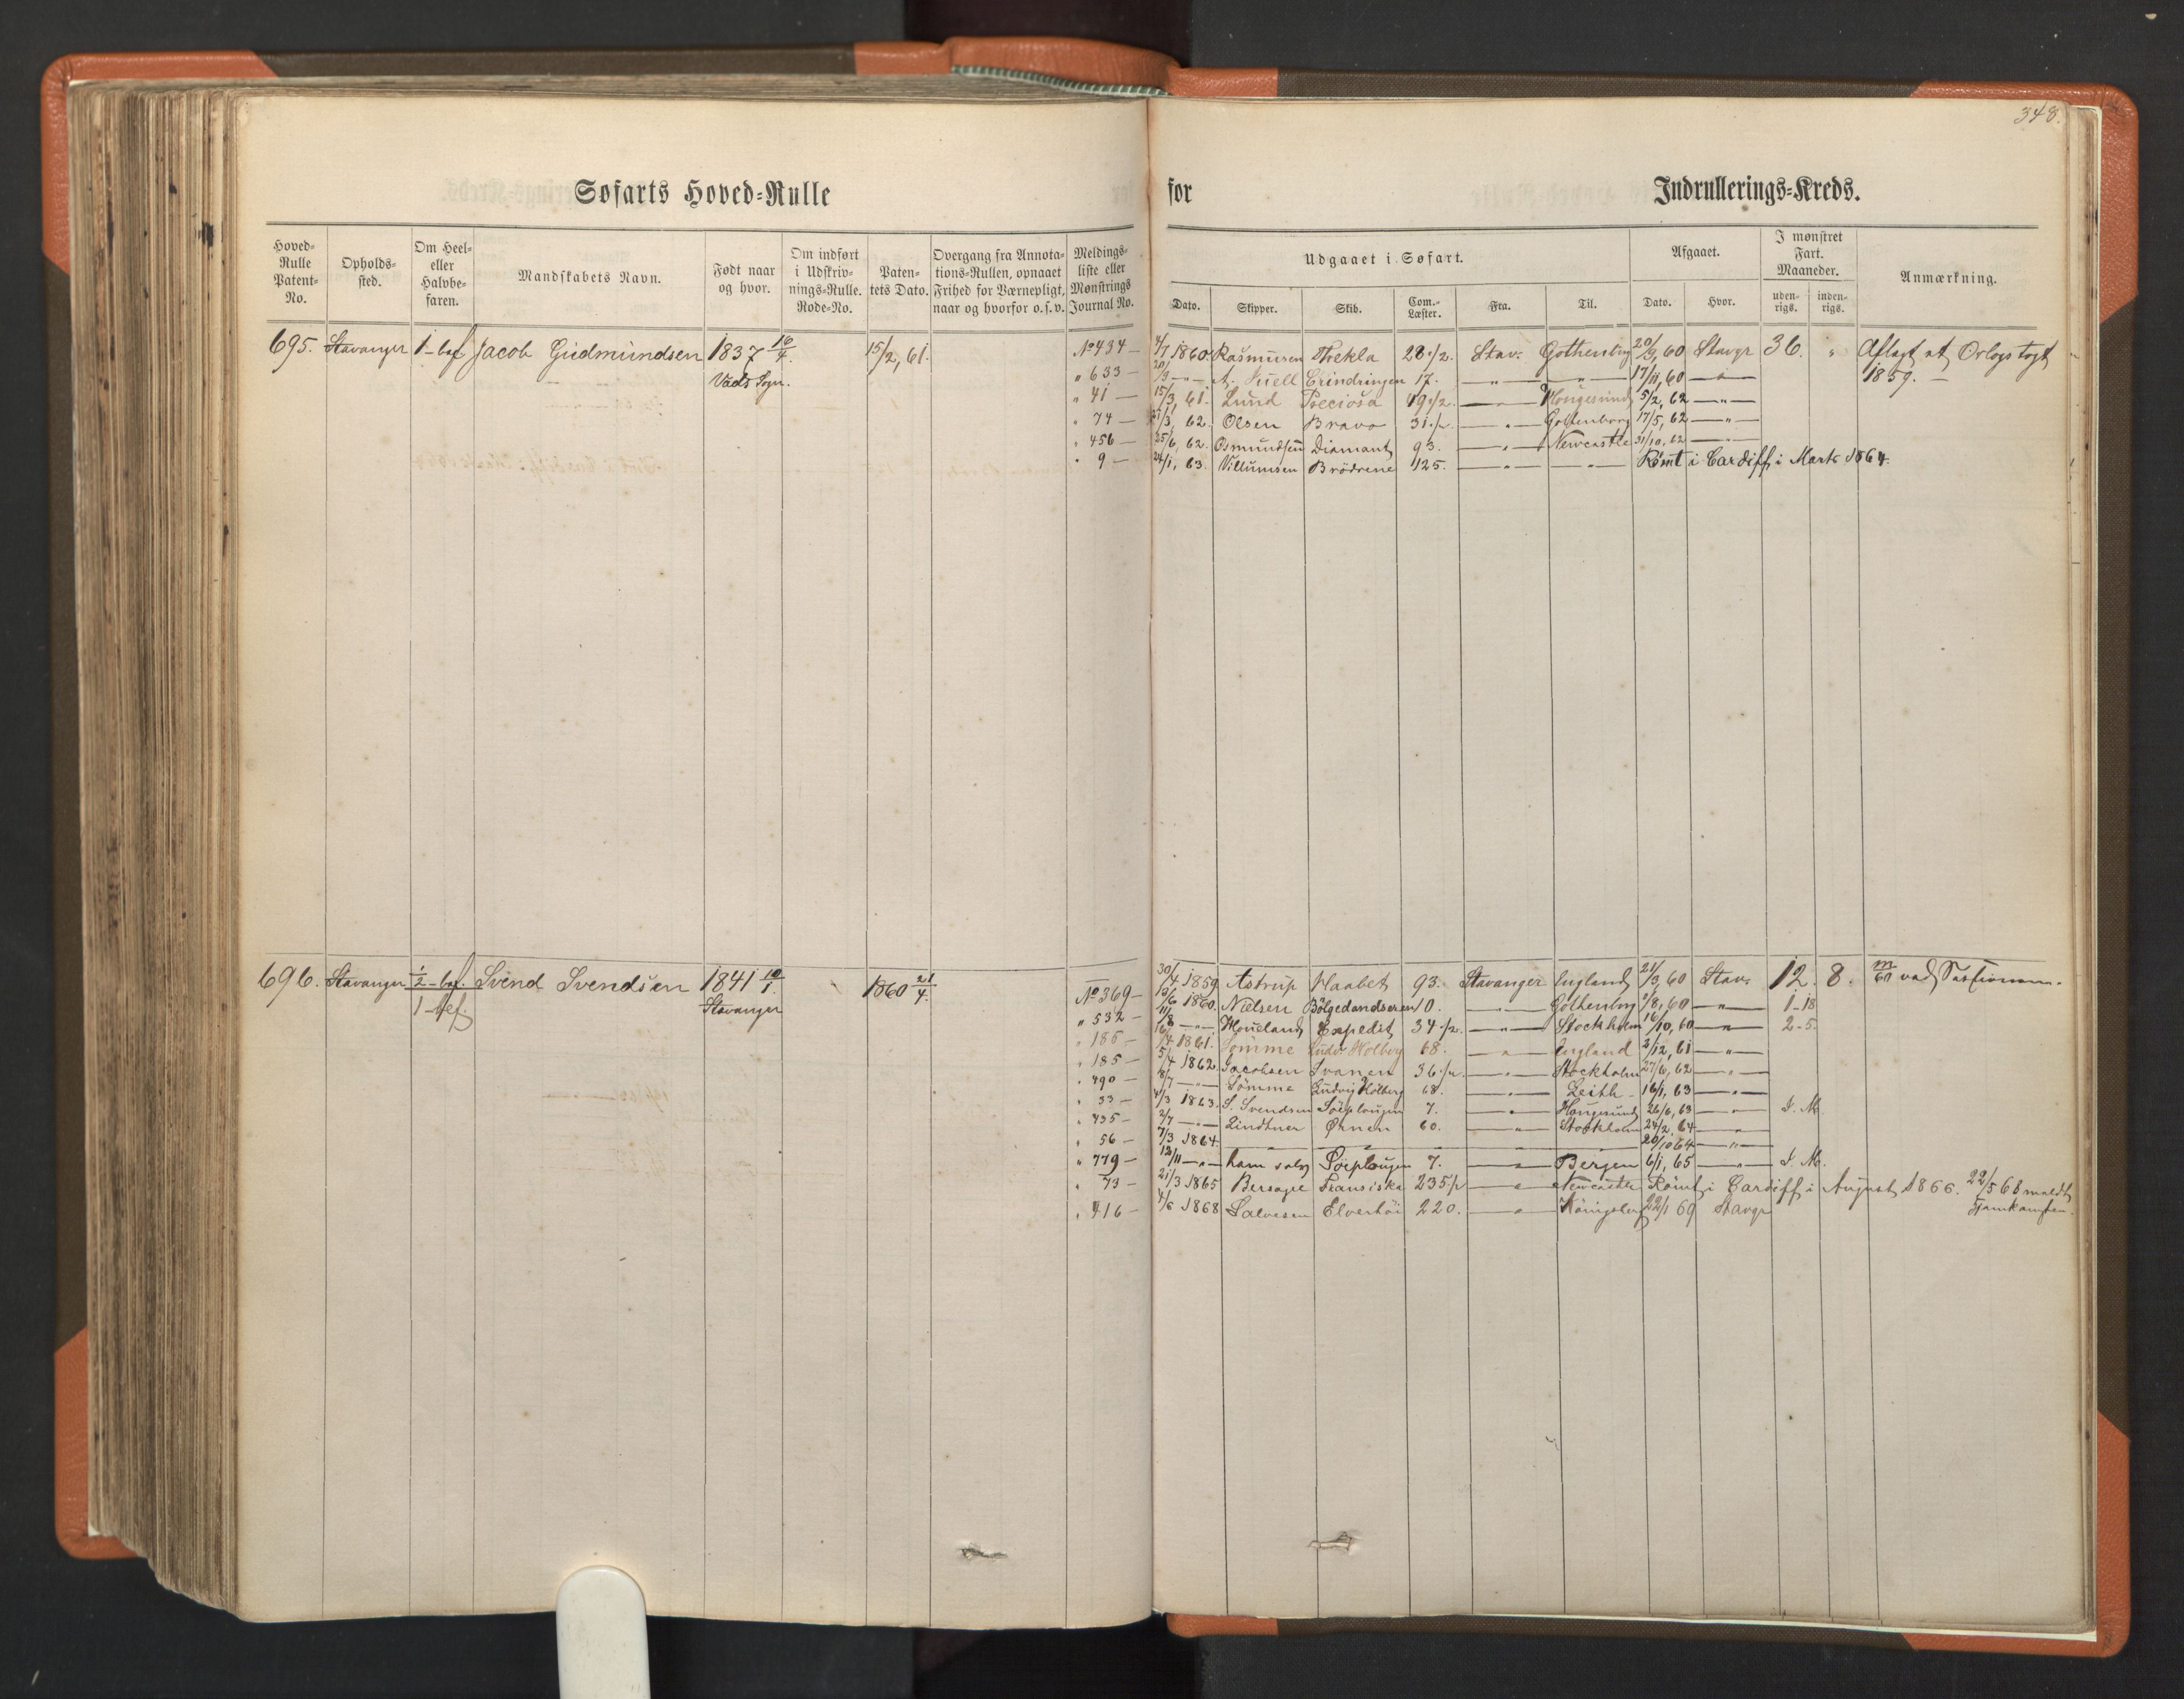 348.
Søfarts Hoved-Rulle for Indrullerings-Kreds.
Hoved-Rulle Patent-No. Opholds-sted. Om Heel- eller Halvbe-faren. Mandskabets Navn. Født naar og hvor. Om indført i Udskriv-nings-Rulle. Rode-No. Paten-tets Dato. Overgang fra Annota-tions-Rullen, opnaaet Frihed for Værnepligt, naar og hvorfor o.s.v. Meldings-liste eller Mønstrings Journal No.
Udgaaet i Søfart. Afgaaet. I mønstret Fart. Maaneder. Anmærkning.
Dato. Skipper. Skib. Com.-Læster. Fra. Til. Dato. Hvor. uden-rigs. inden-rigs.
695. Stavanger 1-bef Jacob Gudmundsen 1837 16/4. 15/2, 61. No 434 — 4/7 1860 Rasmusen Thekla 28 1/2. Stav. Gothenborg 20/9, 60 Stavgr 36. " Aflagt et Orlogs togt
Vads Sogn. " 633 — — " — A. Juell Erindringen 17. — " — — " — 17/11, 60 — " — 1859. —
" 41 — 15/3, 61. Lund Preciosa 49 1/2. — " — Hougesund 5/2, 62 — " —
" 74 — 27/3, 62. Olsen Bravo 31 1/2. — " — Gothenborg 17/5, 62 — " —
" 456 — 25/6, 62. Osmundsen Diamant 93. — " — Newcastle 31/10, 62 — " —
" 9 — 24/1, 63. Villumsen Brödrene 125. — " — — " — Römt i Cardiff i Marts 1864.
696. Stavanger 1/2-bef. Svend Svendsen 1841 10/1. 1860 21/4. No 369 — 30/4 1859 Astrup Haabet 93. Stavanger England 21/3, 60 Stav. 12. 8.
1-bef. Stavanger " 532 — 1860. Nielsen Bölgedandseren 10. — " — Gothenborg 1/8, 60 — " — 1-18
" 186 — — " — Houeland Expedit 34 1/2. — " — Stockholm 16/10, 60 — " — 2-5.
" 185 — 1861. Sömme Ludv. Holberg 68. — " — England 2/12, 61 — " —
" 490 — 5/4 1862. Jacobsen Svanen 36 1/2. — " — Stockholm 27/6, 62 — " —
" 33 — 8/7 — " — Sömme Ludvig Holberg 68. — " — Leith — 16/1, 63 — " —
" 435 — 4/3 1863. S. Svendsen Söeplougen 7. — " — Hougesund 26/6, 63 — " — I. M.
" 56 — 2/7 — " — Lindtner Ørnen 60. — " — Stockholm 24/2, 64 — " —
7/3 1864 — " — — " — — " — 20/10 64 — " —
" 779 — 12/11 — " — ham selv Söeplougen 7. — " — Bergen 6/1, 65 — " — I. M.
" 73 — 21/3 1865 Bersagel Fransiska 235 1/2 — " — Newcastle Römt i Cardiff i August 1866. 22/5 68 meldt
" 416 — 4/6 1868 Salvesen Elverhöi 220. — " — Königsberg 22/1 69 Stavgr Hjemkomsten.